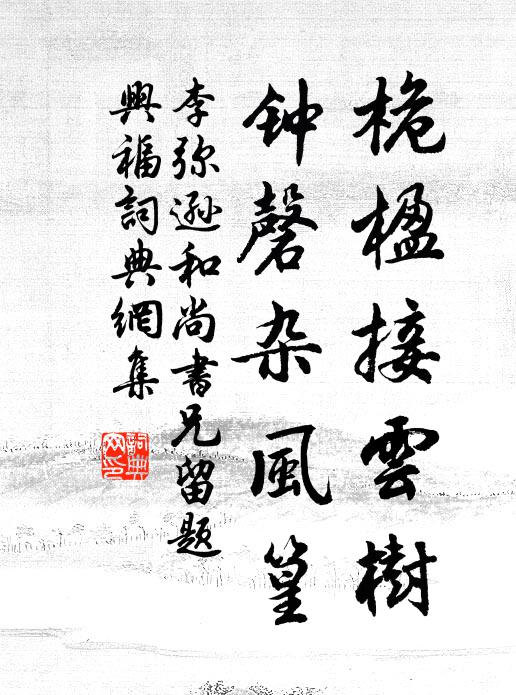 桅楹接雲樹
钟磬杂風篁
李弥遜和尚書兄留题
興福詞典網集
詞典网印